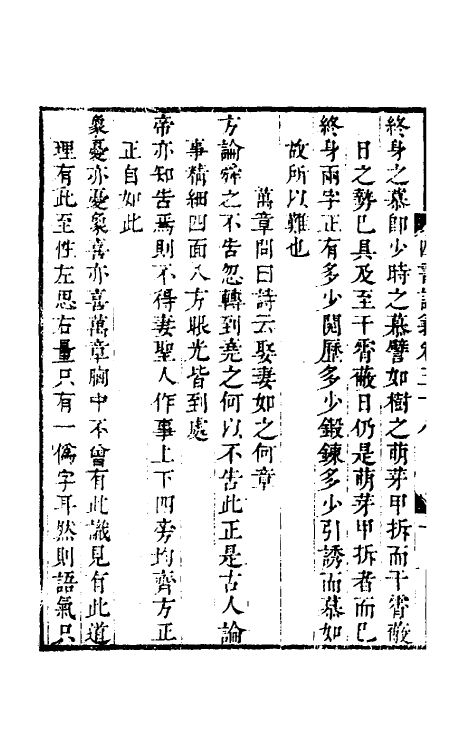 終身之慕卽少時之慕譬如樹之萌芽甲拆而干霄蔽
日之勢已具及至干霄蔽日仍是萌芽甲拆者而已
終身兩字正有多少閱歷多少鍛鍊多少引誘而慕如
故所以難也
萬章問曰詩云娶妻如之何章
方論舜之不告忽轉到堯之何以不告此正是古人論
事精細四面八方眼光皆到處
帝亦知告焉則不得妻聖人作事上下四旁均齊方正
正自如此
象憂亦憂象喜亦喜萬章胸中不曾有此識見有此道
理有此至性左思右量只有一僞字耳然則語氣只
四書講義卷三十八